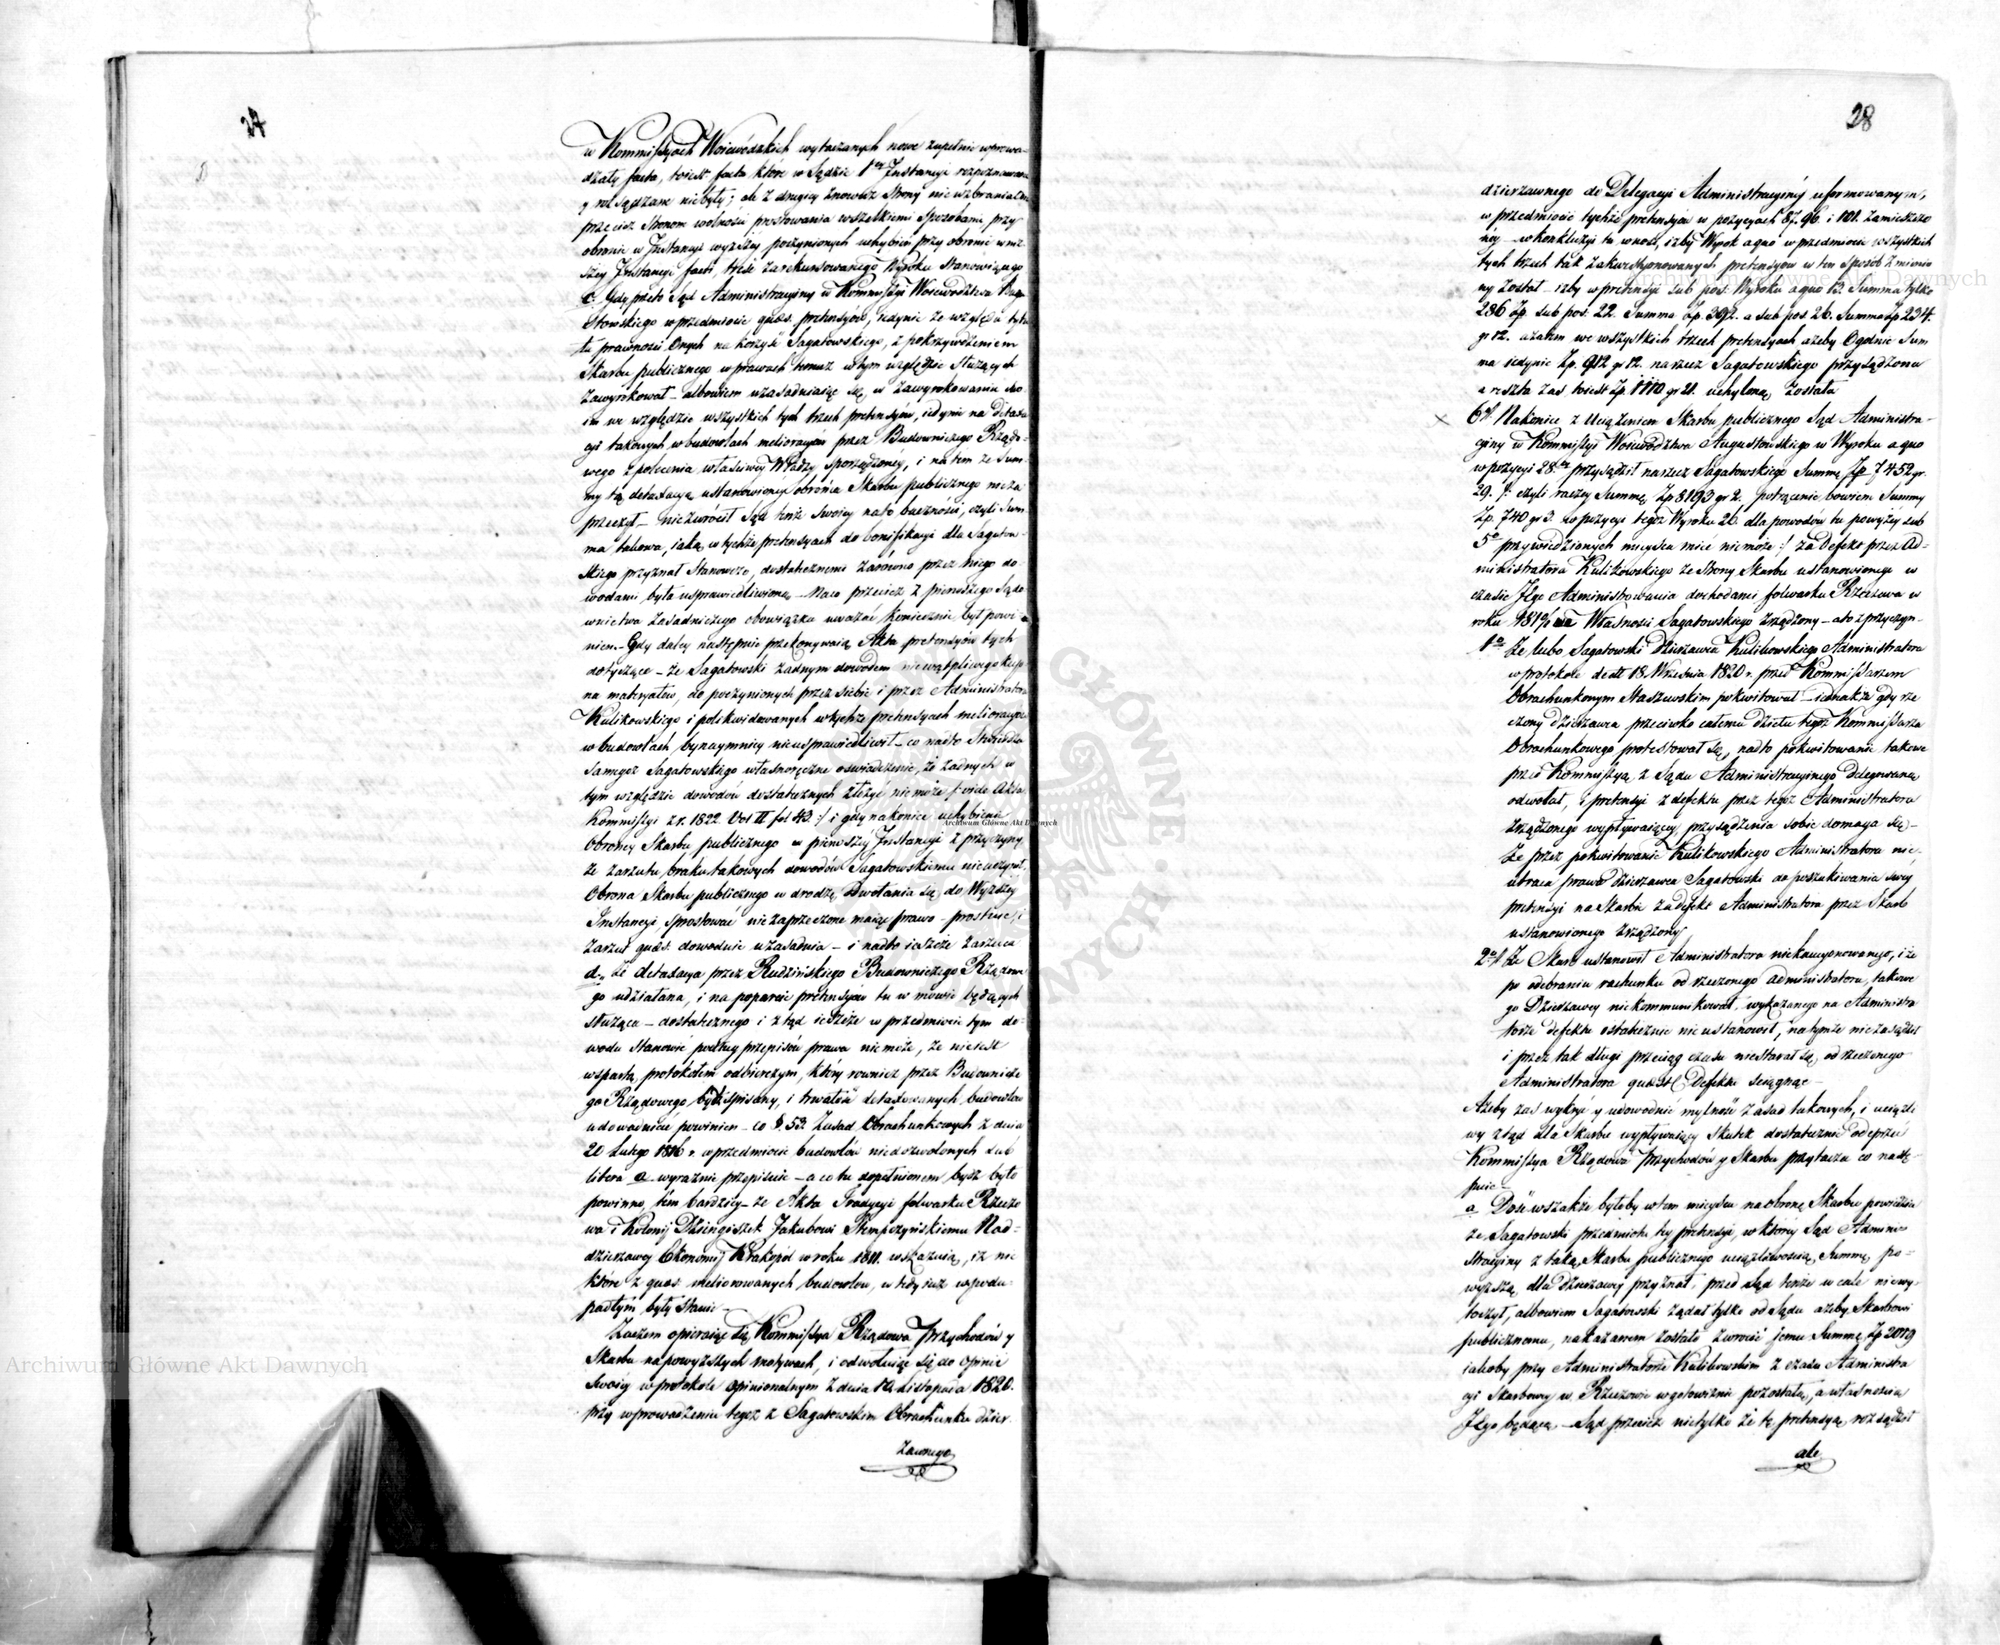 27
w Kommissyach Woiewódzkich wytaczanych nowe zupełnie wprowa-
dzały facta, toiest facta które w Sądzie 1ey Instancyi rozpoznawane
y rozsądzane niebyły; ale z drugiey znowuż Strony nie wzbraniaią
przecież Stronom wolności prostowania wszelkiemi Sposobami, przy
obronie w Instancyi wyższey poczynionych uchybień przy obronie w niż-
szey Instancyi facti, treść zarekursowanego Wyroku Stanowiącego
c. Gdy przeto Sąd Administracyiny w Kommissyi Woiewództwa Augu-
stowskiego w przedmiocie quaes. pretensyów, iedynie ze względu tytu-
łu prawności Onych na korzyść Sagatowskiego, z pokrzywdzeniem
Skarbu publicznego w prawach temuż w tym względzie Służących
zawyrokował – albowiem uzasadniaiąc się w zawyrokowaniu swo-
im we względzie wszystkich tych trzech pretensyów, iedynie na detaxa-
cyi takowych w budowlach melioracyów przez Budowniczego Rządo-
wego z polecenia właściwey Władzy sporządzoney, i na tem że Sum-
my tą detaxacyą ustanowioney obrońca Skarbu publicznego nieza-
przeczył – niezwrócił Sąd tenże Swoiey na to baczności, czyli Sum-
ma takowa, iaką w tychże pretensyach do bonifikacyi dla Sagatow-
skiego przyznał Stanowczo, dostatecznemi zarówno przez niego do-
wodami była usprawiedliwioną – Na co przecież z pierwszego Sądo-
wnictwa Zasadniczego obowiązku uważać koniecznie był powi-
nien – Gdy daley następnie przekonywaią Akta pretensyów tych
dotyczące – że Sagatowski żadnym dowodem niewątpliwego kup-
na materyałów, do poczynionych przez siebie i przez Administratora
Kulikowskiego i polikwidowanych w tychże pretensyach melioracyów
w budowlach bynaymniey nieusprawiedliwił – co nadto Stwierdza
samegoż Sagatowskiego własnoręczne oswiadczenie, że żadnych w
tym względzie dowodów dostatecznych złożyć nie może /: vide Akta
Kommissyi z r. 1822 Vol II fol 43 :/ i gdy nakoniec uchybienie
Obrońcy Skarbu publicznego w pierwszey Instancyi z przyczyny
że zarzutu braku takowych dowodów Sagatowskiemu nieuczynił,
Obrona Skarbu publicznego w drodze Odwołania się do Wyższey
Instancyi Sprostować niezaprzeczone maiąc prawo – prostuie, i
zarzut quaes. dowodnie uzasadnia – i nadto ieszcze zarzuca
d. że detaxacya przez Rudzińskiego Budowniczego Rządowe-
go udziałana, i na poparcie pretensyów tu w mowie będących
służąca – dostatecznego i ztąd ieszcze w przedmiocie tym do-
wodu stanowić podług przepisów prawa nie może, że nieiest
wspartą protokołem odbiorczym, który równiez przez Budownicze-
go Rządowego bydź spisany, i trwałość detaxowanych budowlów
udowodnić powinien – co §. 53 Zasad Obrachunkowych z dnia
20 Lutego 1816 r. w przedmiocie budowlów niedozwolonych sub
litera a wyraźnie przepisuie – a co tu dopełnionem bydź było
powinno, tem bardziey – że Akta Tradycyi folwarku Rzeczo-
wa i Kolonij Dźieńgiszek Jakubowi Remczyńskiemu Nad-
dzierżawcy Ekonomij Krakopol w roku 1811. wskazuią, iż nie-
które z quaes. meliorowanych budowlów, w tedy iuż w spodu-
padłym były stanie –
Zaczem opieraiąc się Kommissya Rządowa Przychodów y
Skarbu na powyższych motywach, i odwołuiąc się do opinii
swoiey w protokole opinionalnym z dnia 10. Listopada 1820.
przy wprowadzeniu tegoż z Sagatowskim Obrachunku dzier-
żawnego
28
dzierżawnego do Delegacyi Administracyiney uformowanym,
w przedmiocie tychże pretensyów w pozycyach 87. 96 i 101. zamieszczo-
ney – w konkluzyi tu wnosi, iżby Wyrok a quo w przedmiocie wszystkich
tych trzech tak zakwestyonowanych pretensyów w ten sposób zmienio-
ny został – iżby w pretensyi sub pos: Wyroku a quo 13. Summa tylko
286 Zp. sub pos. 22. Summa Zp. 392. a sub pos 26. Summa Zp 234.
gr 12. a zatem we wszystkich trzech pretensyach ażeby Ogólnie Sum-
ma iedynie Zp. 912 gr 12. na rzecz Sagatowskiego przysądzona
a reszta zaś toiest Zp 1110 gr 21. uchyloną została
6to Nakoniec z Uciążeniem Skarbu publicznego Sąd Administra-
cyiny w Kommissyi Woiewództwa Augustowskiego w Wyroku a quo
w pozycyi 28. przysądził na rzecz Sagatowskiego Summę Zp 7452 gr.
29. /: czyli raczey Summę Zp 8193 gr 2. potrącenie bowiem Summy
Zp. 740 gr 3. co pozycyi tegoż Wyroku 26. dla powodów tu powyżey sub
5o przywiedzionych mieysca mieć niemoże :/ za Defekt przez Ad-
ministratora Kulikowskiego ze Strony Skarbu ustanowionego w
czasie Jego Administrowania dochodami folwarku Rzeczowa w
roku 181 Własności Sagatowskiego zrządzony – a to z przyczyn –
1o Że lubo Sagatowski Dzierżawca Kulikowskiego Administratora
w protokole de dt 18. Września 1820 r. przed Kommissarzem
Obrachunkowym Staszewskim pokwitował – iednakże gdy rze-
czony dzierżawca przeciwko całemu dziełu tegoż Kommissarza
Obrachunkowego protestował się, nadto pokwitowanie takowe
przed Kommissyą z Sądu Administracyinego Delegowaną
odwołał, i pretensyi z defektu przez tegoż Administratora
zrządzonego wypływaiącey, przysądzenia sobie domaga się –
że przez pokwitowanie Kulikowskiego Administratora nie-
utraca prawa dzierżawca Sagatowski do poszukiwania swey
pretensyi na Skarbie za defekt Administratora przez Skarb
ustanowionego zrządzony
2o Że Skarb ustanowił Administratora niekaucyonowanego, i że
po odebraniu rachunku od rzeczonego administratora, takowe-
go Dzierżawcy niekommunikował, wykazanego na Administra-
torze defektu ostatecznie nieustanowił, na tymże niezasądził
i przez tak długi przeciąg czasu niestarał się, od rzeczonego
Administratora quaest Defektu ściągnąć –
Ażeby zaś wykryć y udowodnić mylność zasad takowych, i uciążli-
wy ztąd dla Skarbu wypływaiący Skutek dostatecznie odeprzeć
Kommissya Rządowa Przychodów y Skarbu przytacza co nastę-
puie –
a Dość wszakże byłoby w tem mieyscu na obronę Skarbu powiedzieć
że Sagatowski przedmiotu tey pretensyi, w którey Sąd Admini-
stracyiny z taką Skarbu publicznego uciążliwością Summę po-
wyższą dla dzierżawcy przyznał, przed Sąd tenże w cale niewy-
toczył, albowiem Sagatowski żądał tylko od Sądu ażeby Skarbowi
publicznemu, nakazanem zostało zwrócić jemu Summę Zp 2019
iakoby przy Administratorze Kulikowskim z czasu Administra-
cyi Skarbowey w Rzeczowie w gotowiźnie pozostałą, a własnością
Jego będącą. – Sąd przecież nietylko że tę pretensyą rozsądził
ale
Archiwum Główne Akt Dawnych
Archiwum Główne Akt Dawnych
Archiwum Główne Akt Dawnych